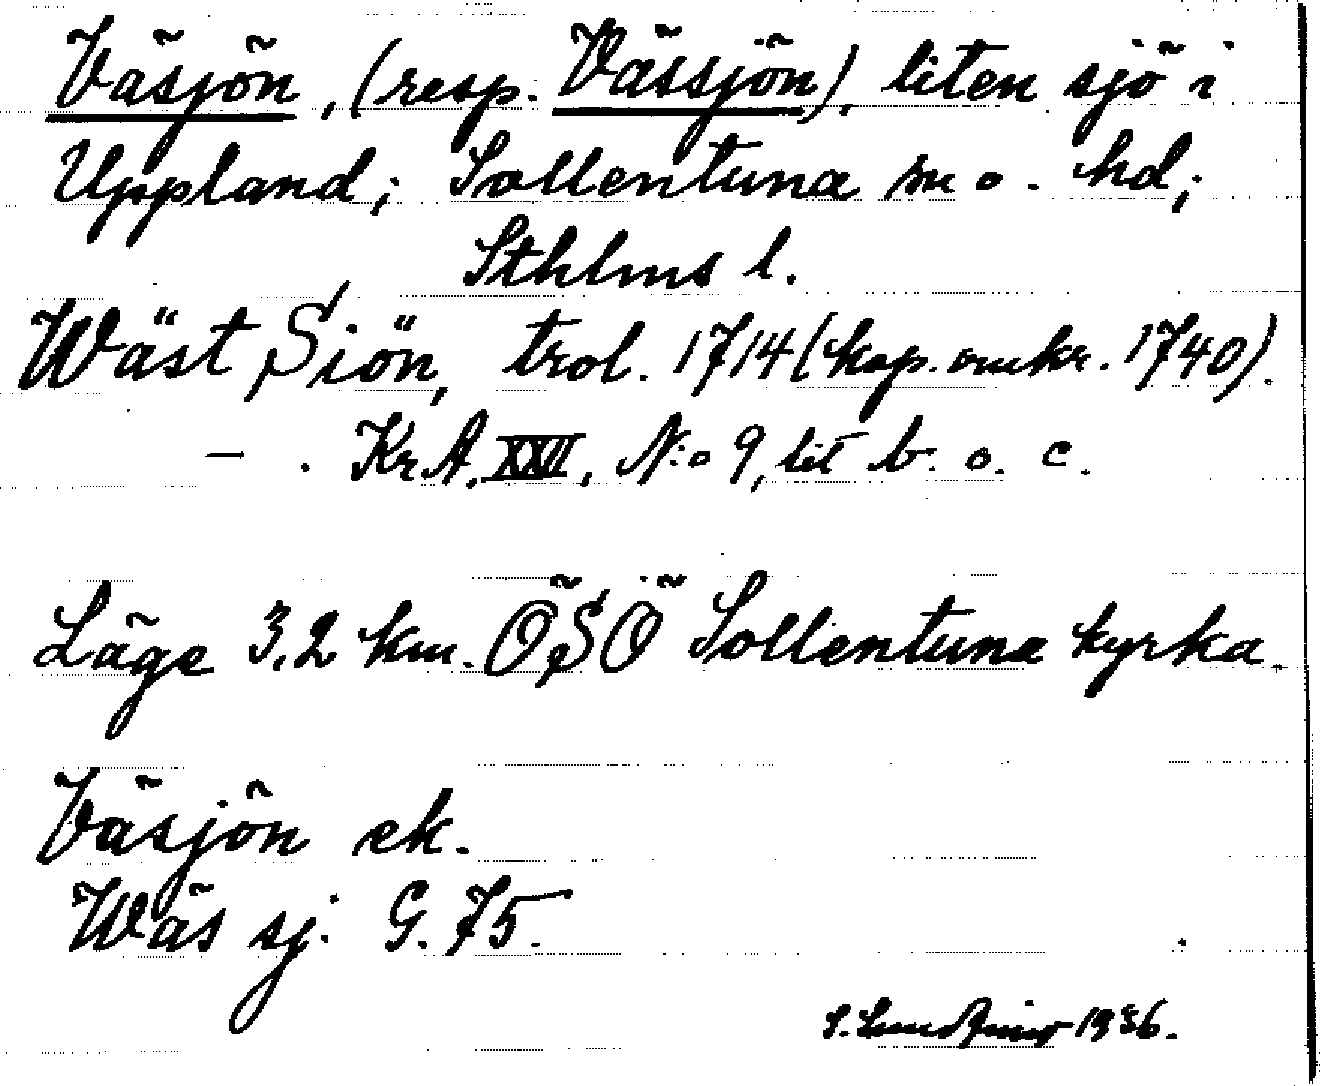 Väsjön, (resp. Vässjön), liten sjö i
Uppland; Sollentuna sn o. hd;
Sthlms l.
Wäst Siön, trol. 1714 (kop. omkr. 1740).
— . KrA. XXII, N:o 9, lit b. o. c.
Läge 3,2 km. ÖSÖ Sollentuna kyrka.
Väsjön ek.
Wäs sj. G. 75.
1936.